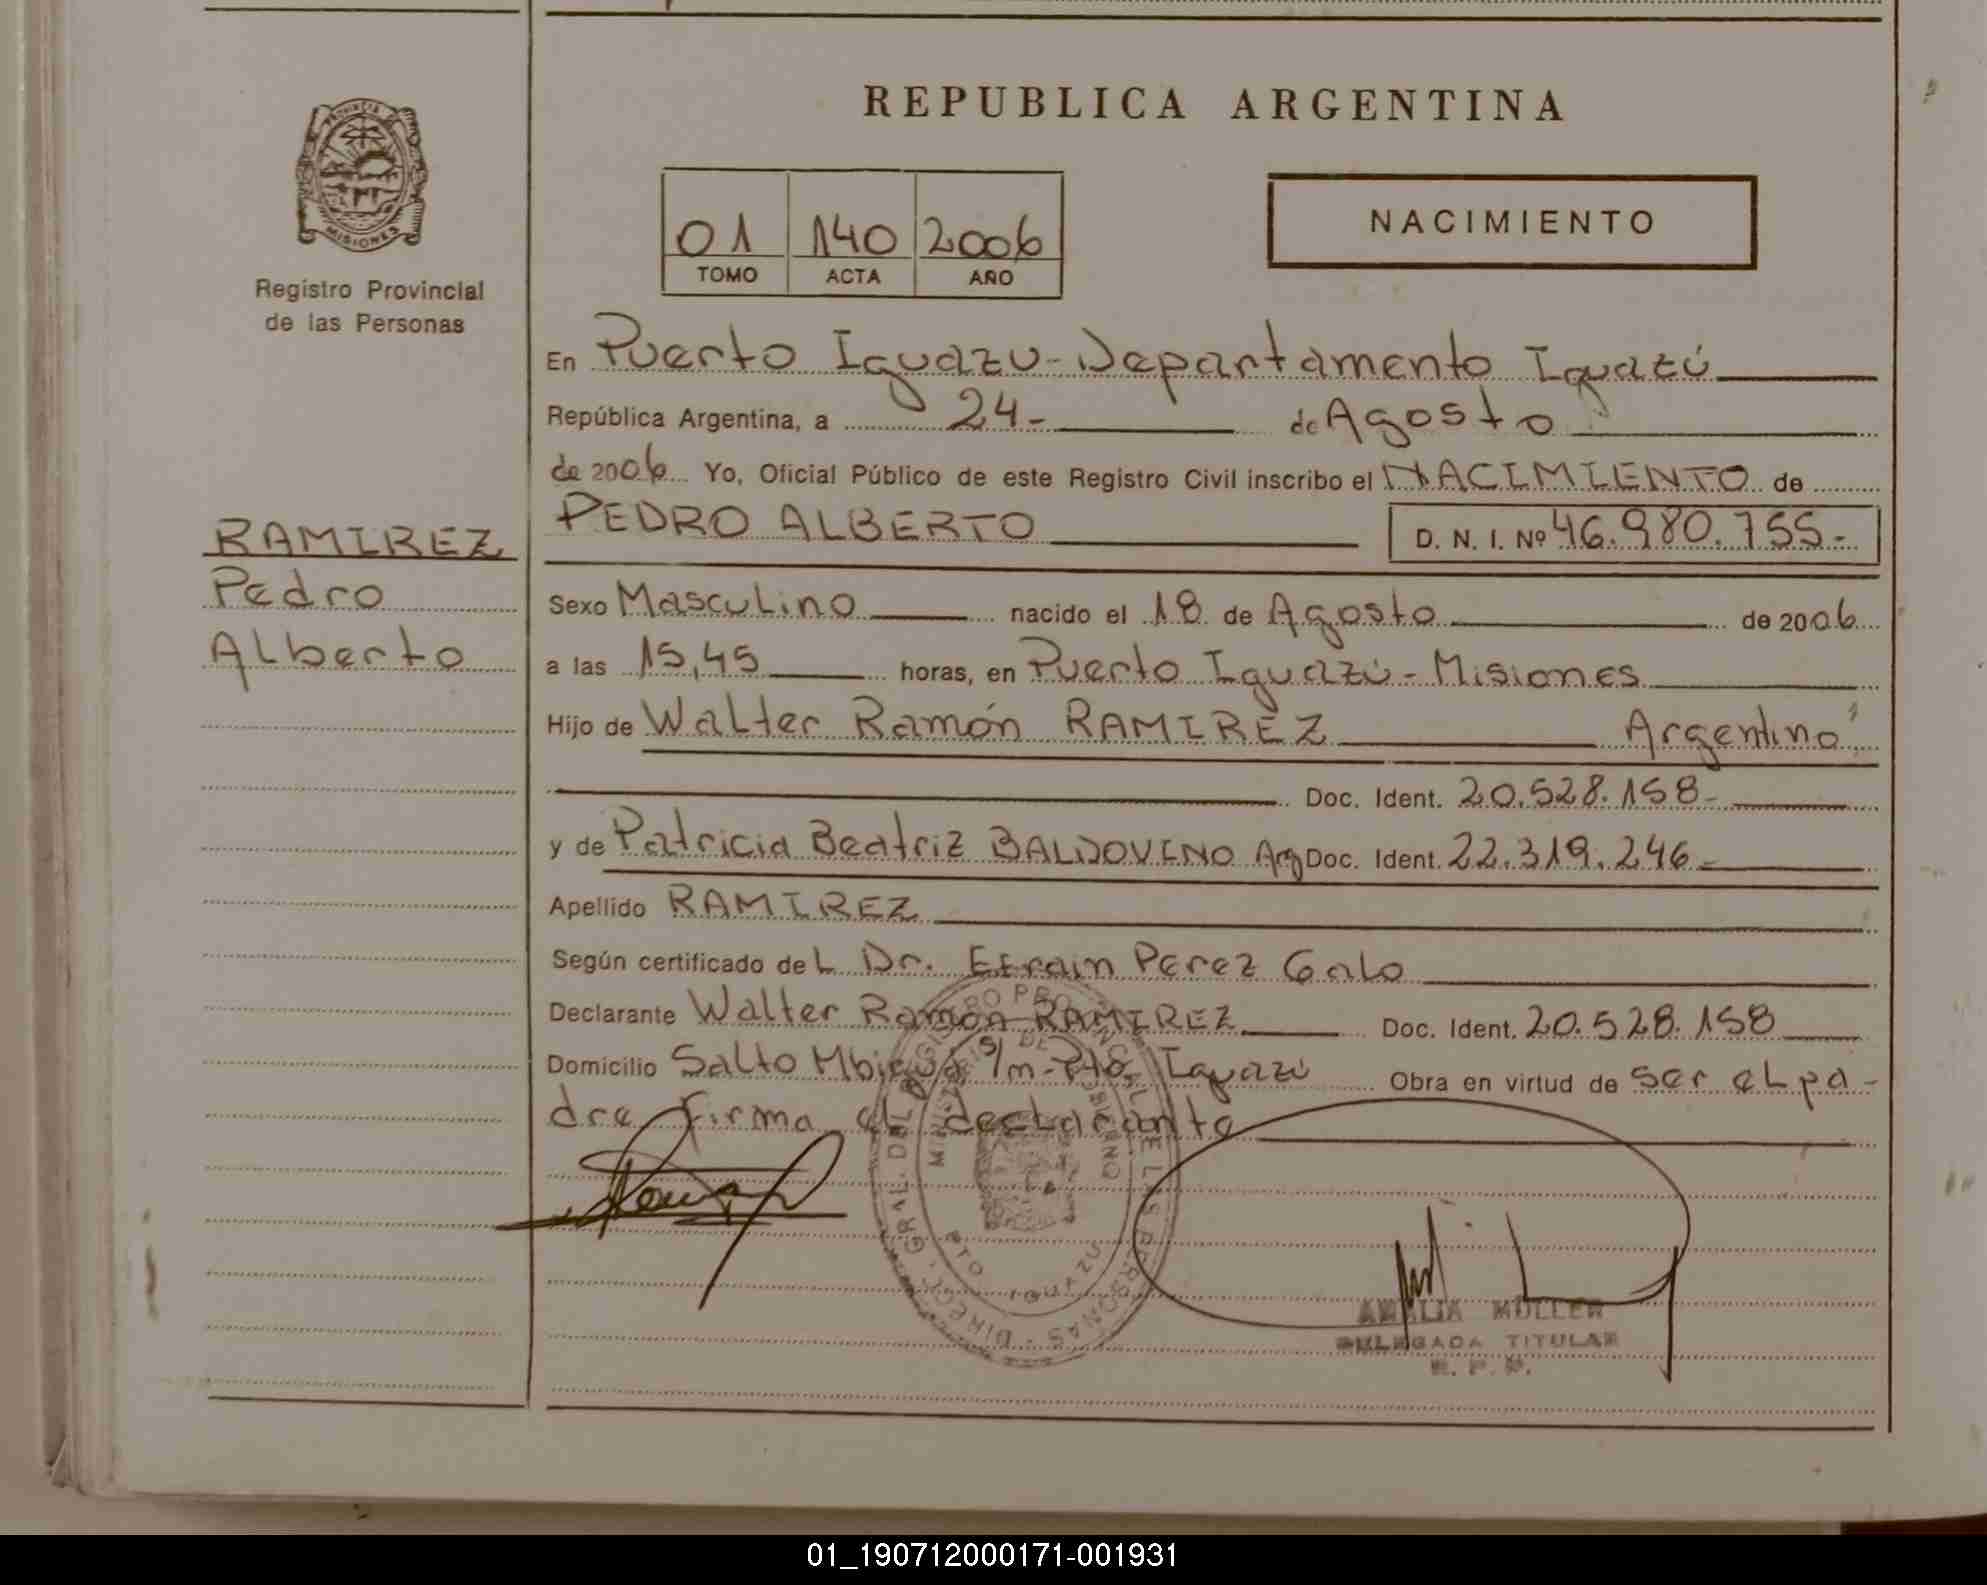 REPUBLICA ARGENTINA
PROVINCIA DE
MISIONES
Registro Provincial
de las Personas
01 140 2006
TOMO ACTA AÑO
NACIMIENTO
En Puerto Iguazu-Departamento Iguazú
República Argentina, a 24- de Agosto
de 2006 Yo, Oficial Público de este Registro Civil inscribo el NACIMIENTO de
PEDRO ALBERTO D. N. I. Nº 46.980.755-
RAMIREZ
Pedro
Alberto
Sexo Masculino nacido el 18 de Agosto de 2006
a las 15,45 horas, en Puerto Iguazú-Misiones
Hijo de Walter Ramón RAMIREZ Argentino
Doc. Ident. 20.528.158-
y de Patricia Beatriz BALDOVINO Arg Doc. Ident. 22.319.246-
Apellido RAMIREZ
Según certificado deL Dr. Efrain Perez Galo
Declarante Walter Ramón RAMIREZ Doc. Ident. 20.528.158
Domicilio Salto Mbiguá s/m-Pto. Iguazú Obra en virtud de ser eL pa-
dre firma el declarante
DIRECC. GRAL. DEL REGISTRO PROVINCIAL DE LAS PERSONAS
MINISTERIO DE GOBIERNO
PTO IGUAZU
AMALIA MÜLLER
DELEGADA TITULAR
R. P. P.
01_190712000171-001931